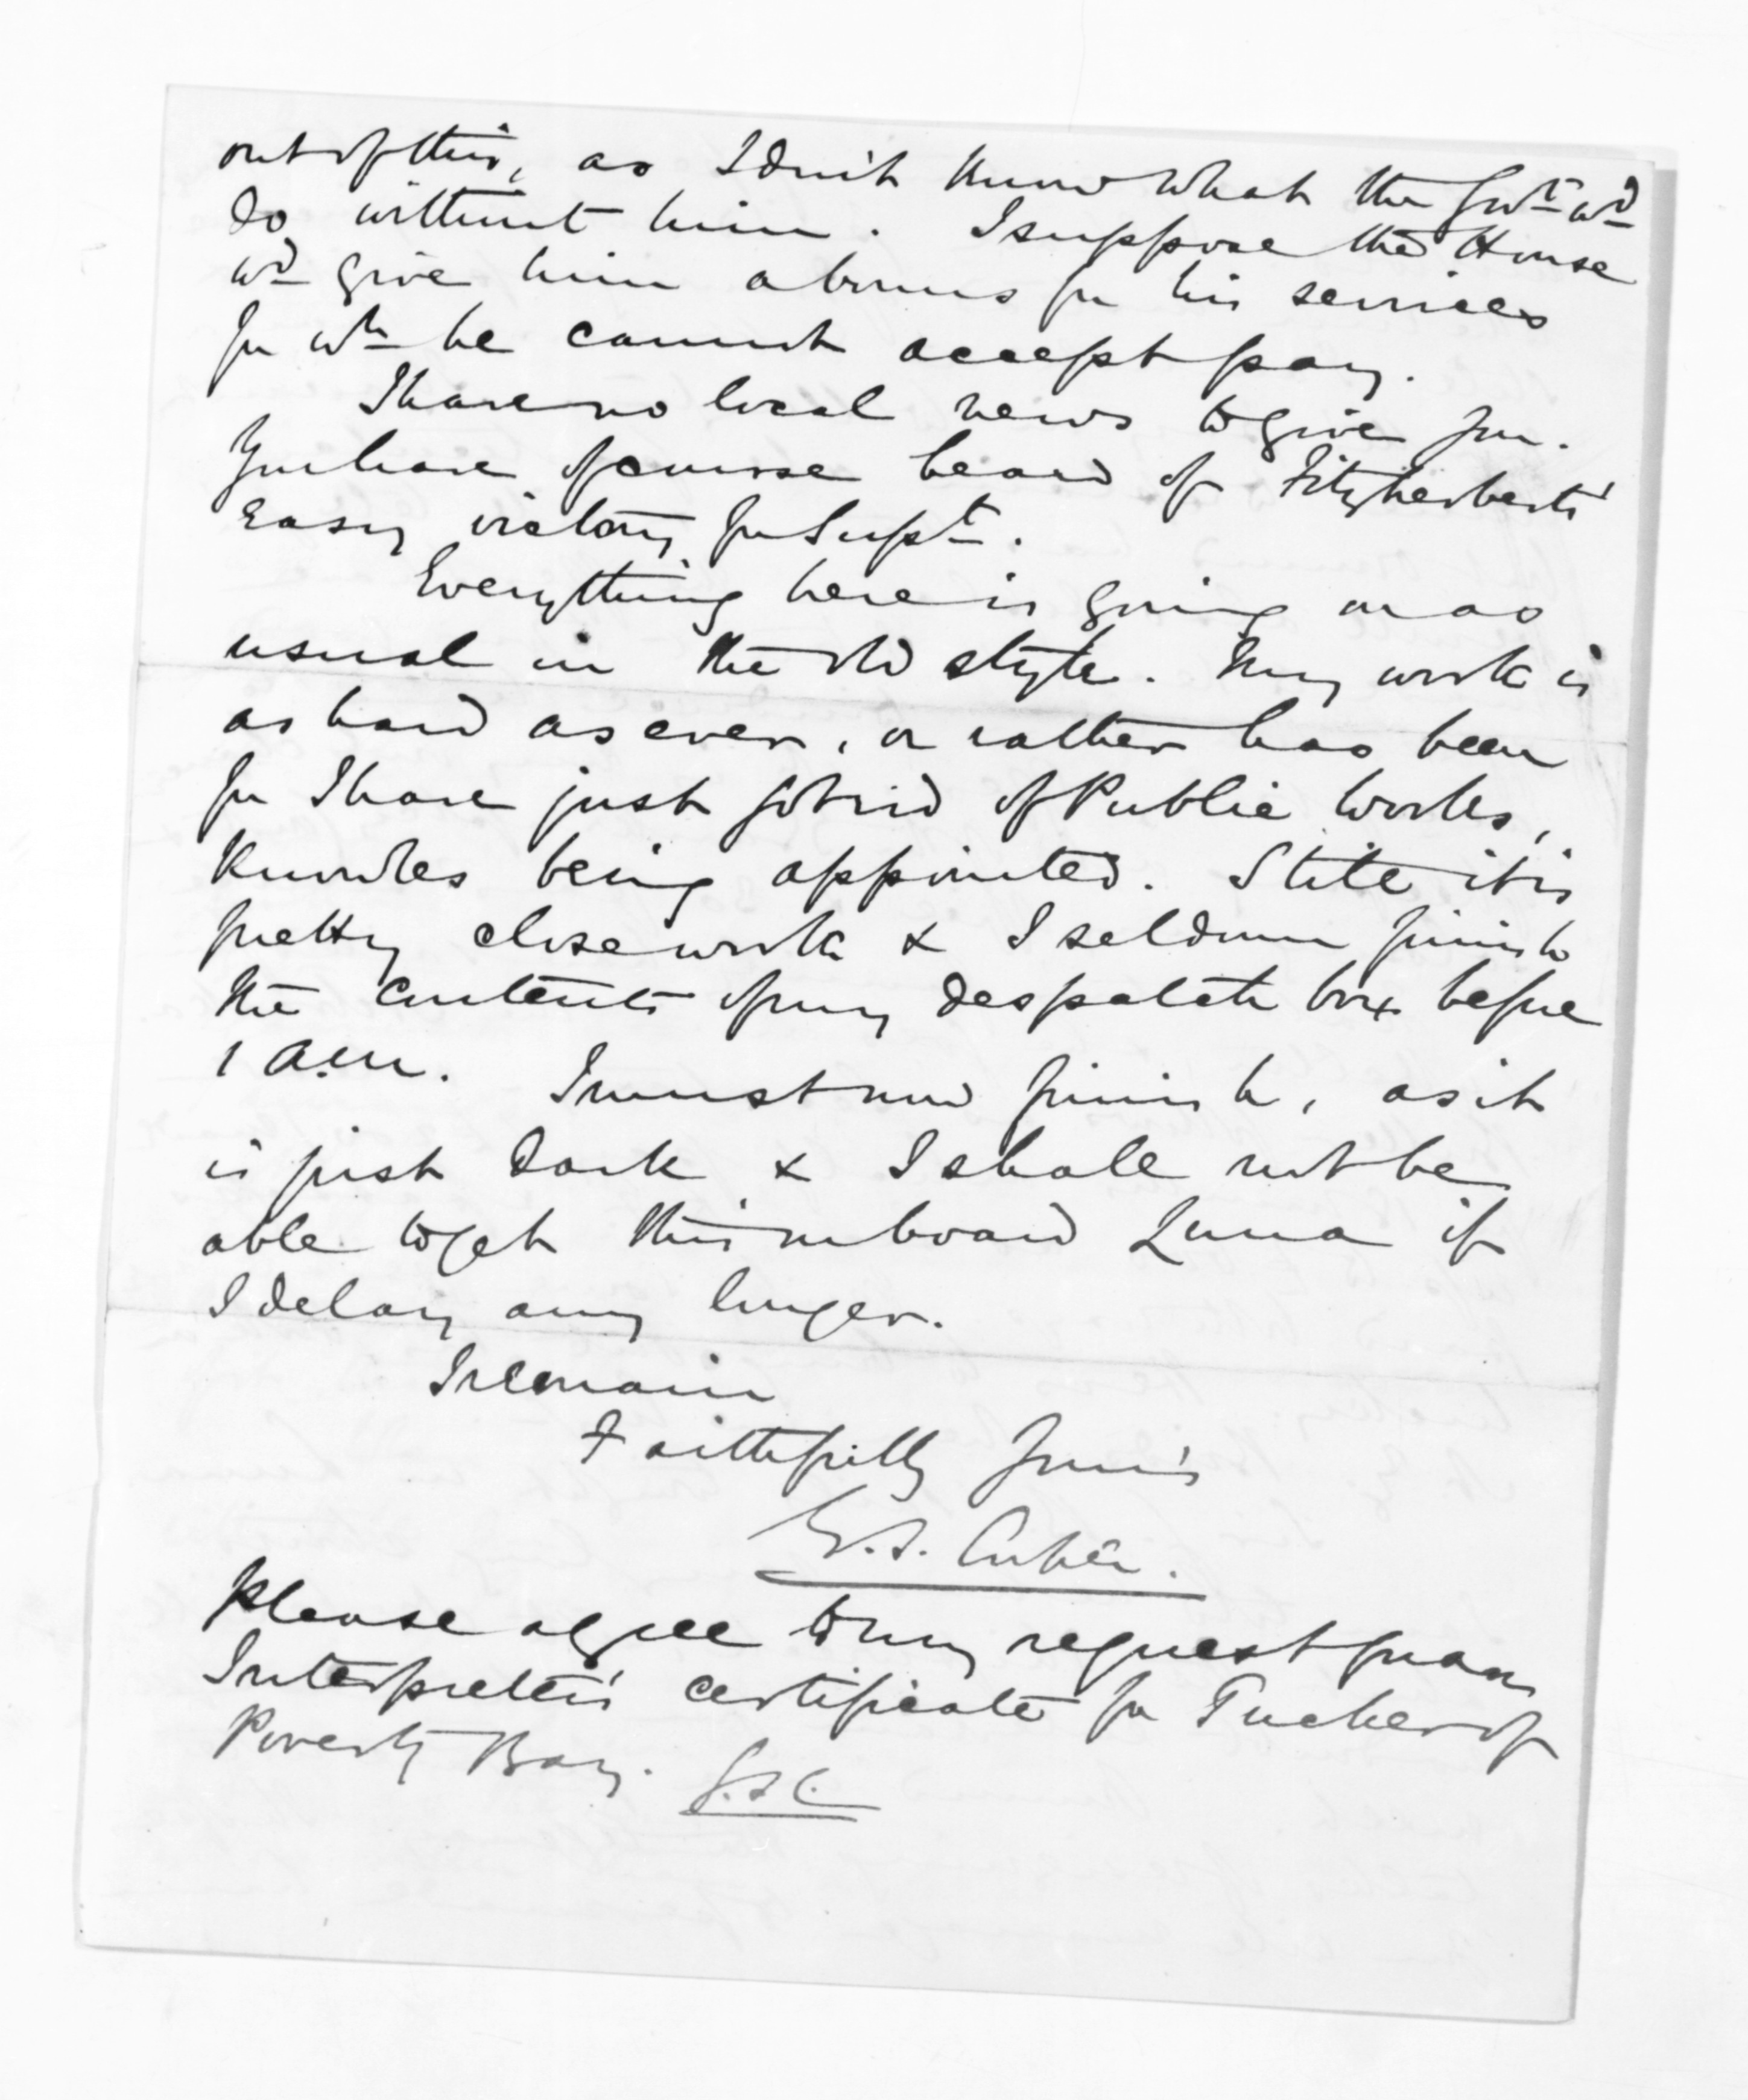 out of this, as I don't know what the Govt. wd.
do without him. I suppose the House
wd. give him a bonus for his services
for wh. he cannot accept pay.
I have no local news to give you.
You have of course heard of Fitzherbert's
easy victory for Supt.
Everything here is going on as
usual in the old style. My work is
as hard as ever, or rather has been
for I have just got rid of Public Works,
Knowles being appointed. Still it is
pretty close work & I seldom finish
the contents of my despatch box before
1 a.m. I must now finish, as it
is just dark & I shall not be
able to get this on board Luna if
I delay any longer.
I remain
Faithfully yours
G.S. Cooper.
Please agree to my request for an
Interpreter's certificate for Tucker of
Poverty Bay. G.S.C.